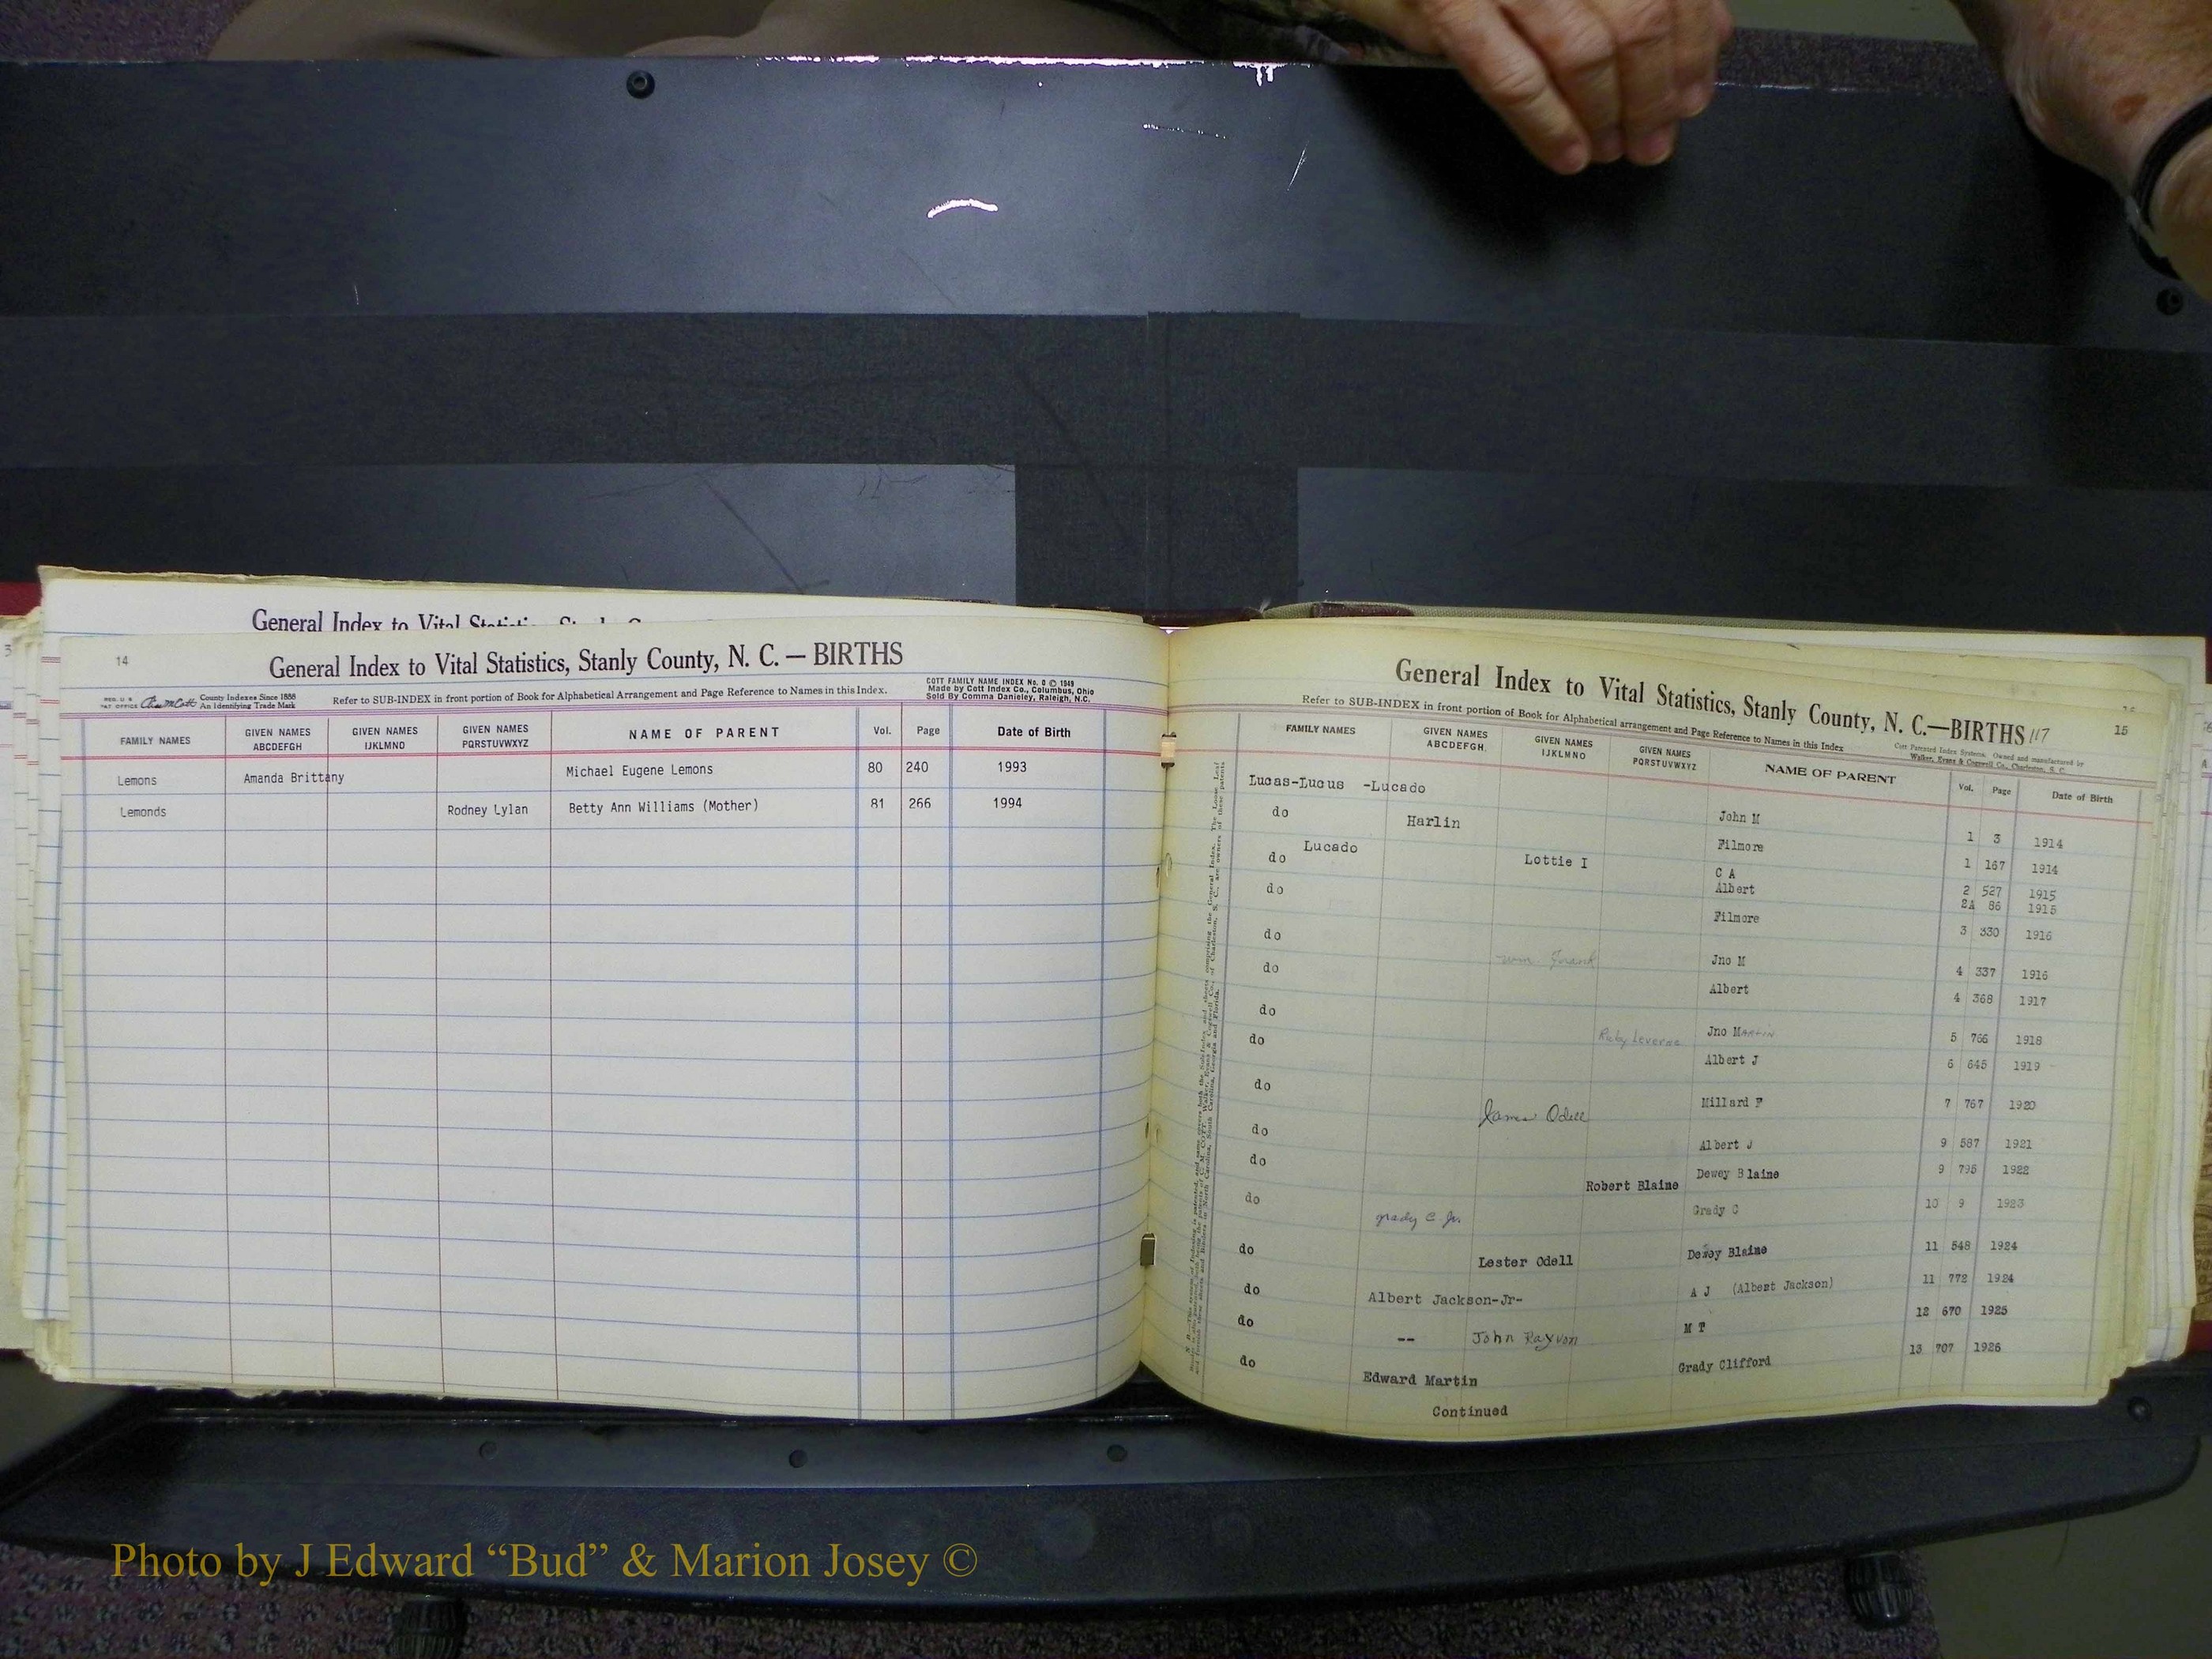 General Index to Vital Statistics, Stanly Co
14
General Index to Vital Statistics, Stanly County, N. C. — BIRTHS
REG. U S PAT OFFICE County Indexes Since 1888 An Identifying Trade Mark
Refer to SUB-INDEX in front portion of Book for Alphabetical Arrangement and Page Reference to Names in this Index.
COTT FAMILY NAME INDEX No. 0 © 1949
Made by Cott Index Co., Columbus, Ohio
Sold By Comma Danieley, Raleigh, N.C.
FAMILY NAMES GIVEN NAMES ABCDEFGH GIVEN NAMES IJKLMNO GIVEN NAMES PQRSTUVWXYZ NAME OF PARENT Vol. Page Date of Birth
Lemons Amanda Brittany Michael Eugene Lemons 80 240 1993
Lemonds Rodney Lylan Betty Ann Williams (Mother) 81 266 1994
General Index to Vital Statistics, Stanly County, N. C.—BIRTHS 117
15
Refer to SUB-INDEX in front portion of Book for Alphabetical arrangement and Page Reference to Names in this Index
Cott Patented Index Systems. Owned and manufactured by
Walker, Evans & Cogswell Co., Charleston, S. C.
FAMILY NAMES GIVEN NAMES ABCDEFGH. GIVEN NAMES IJKLMNO GIVEN NAMES PQRSTUVWXYZ NAME OF PARENT Vol. Page Date of Birth
Lucas-Lucus -Lucado
do Harlin John M 1 3 1914
Lucado Lottie I Filmore 1 167 1914
do C A 2 527 1915
Albert 2A 86 1915
do Filmore 3 330 1916
do Wm Frank Jno M 4 337 1916
do Albert 4 368 1917
do Ruby Leverne Jno MARTIN 5 766 1918
do Albert J 6 645 1919
do James Odell Millard F 7 767 1920
do Albert J 9 587 1921
do Robert Blaine Dewey Blaine 9 795 1922
do Grady C. Jr. Grady C 10 9 1923
do Lester Odell Dewey Blaine 11 548 1924
do Albert Jackson-Jr- A J (Albert Jackson) 11 772 1924
do -- John Rayvon M T 12 670 1925
do Edward Martin Grady Clifford 13 707 1926
Continued
Photo by J Edward “Bud” & Marion Josey ©